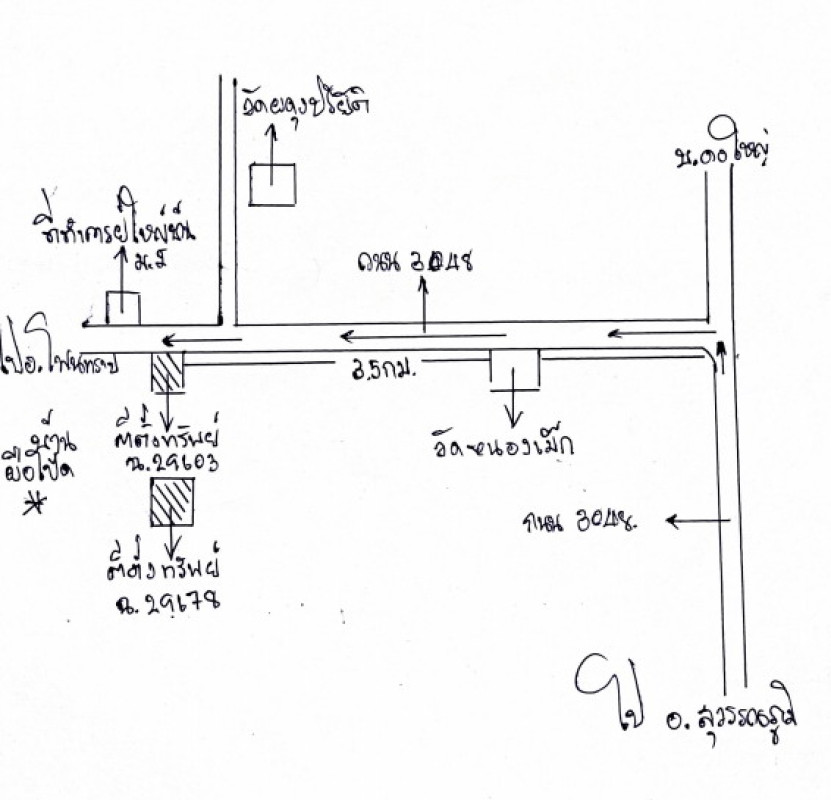 วัดผดุงปริยัติ
บ.ดงใหญ่
ที่ทำการผู้ใหญ่บ้าน
ม.5
ถนน 3048
ไป อ.โพนทราย
3.5 กม.
บ้าน
ที่ตั้งทรัพย์
ฉ.29603
วัดหนองเม็ก
ถนน 3048.
ที่ตั้งทรัพย์
ฉ.29678
ไป อ.สุวรรณภูมิ